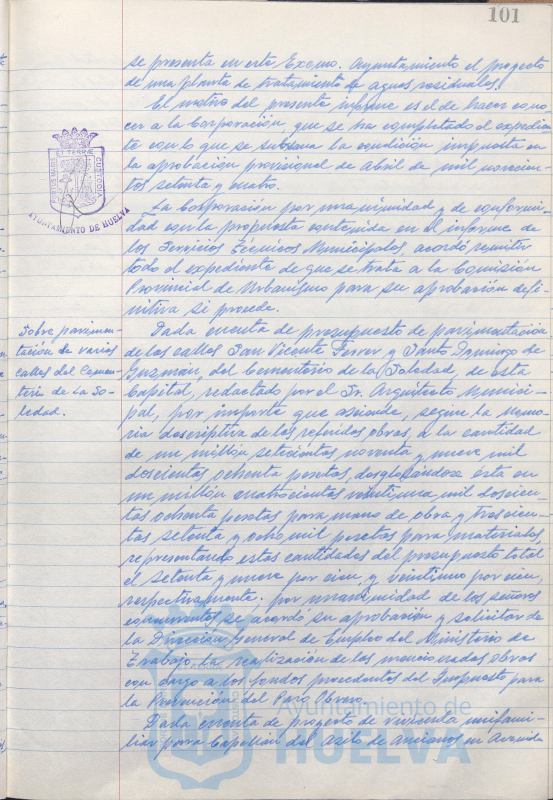 101
se presenta en este Excmo. Ayuntamiento el proyecto
de una planta de tratamiento de aguas residuales.
El motivo del presente informe es el de hacer cono-
cer a la Corporación que se ha completado el expedien-
te con lo que se subsana la condición impuesta en
la aprobación provisional de Abril de mil novecien-
tos setenta y cuatro.
La Corporación por unanimidad y de conformi-
dad con la propuesta contenida en el informe de
los Servicios Técnicos Municipales, acordó remitir
todo el expediente de que se trata a la Comisión
Provincial de Urbanismo para su aprobación defi-
nitiva si procede.
Sobre pavimen-
tación de varias
calles del Cemen-
terio de La So-
ledad.
Dada cuenta de presupuesto de pavimentación
de las calles San Vicente Ferrer y Santo Domingo de
Guzmán, del Cementerio de la Soledad, de esta
Capital, redactado por el Sr. Arquitecto Munici-
pal, por importe que asciende, según la memo-
ria descriptiva de las referidas obras, a la cantidad
de un millón setecientas noventa y nueve mil
doscientas ochenta pesetas, desglosándose ésta en
un millón cuatrocientas veintiuna mil doscien-
tas ochenta pesetas para mano de obra y trescien-
tas setenta y ocho mil pesetas para materiales,
representando estas cantidades del presupuesto total
el setenta y nueve por cien y veintiuno por cien,
respectivamente; por unanimidad de los señores
concurrentes se acordó su aprobación y solicitar de
la Dirección General de Empleo del Ministerio de
Trabajo, la realización de las mencionadas obras
con cargo a los fondos procedentes del Impuesto para
la Prevención del Paro Obrero.
Dada cuenta de proyecto de vivienda unifami-
liar para Capellán del Asilo de Ancianos en Avenida
AYUNTAMIENTO DE HUELVA
Ayuntamiento de
HUELVA